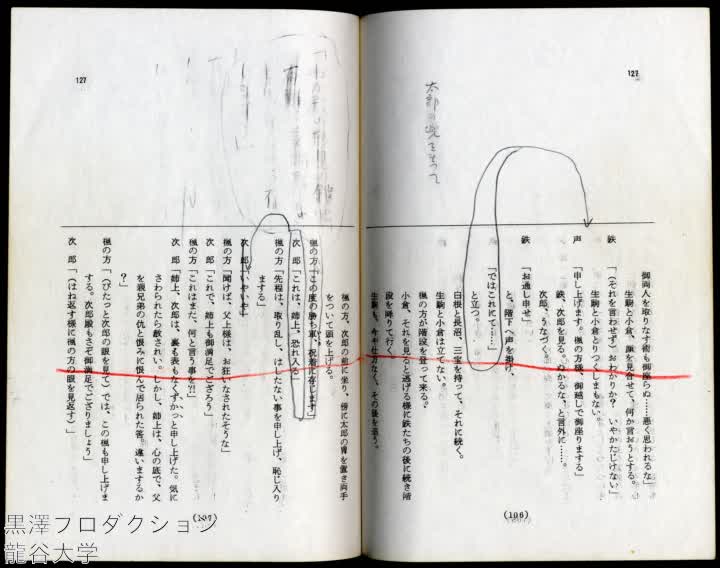 127
太郎の兜をもって
御両人を取りなす術も御座らぬ……悪く思われるな」
生駒と小倉、顔を見合せて、何か言おうとする。
鉄 「(それを言わせず)おわかりか? いやかたじけない」
生駒と小倉とりつくしまもない。
声 「申し上げます。楓の方様、御越しで御座りまする」
鉄、次郎を見る。ぬかるな、と言外に……。
次郎、うなづく。
鉄 「お通し申せ」
と、階下へ声を掛け、
「ではこれにて……」
と立つ。
白根と長沼、三宝を持って、それに続く。
生駒と小倉は立てない。
楓の方が階段を登って来る。
小倉、それを見ると逃げる様に鉄たちの後に続き階
段を降りて行く。
生駒も、今や仕方なく、その後を追う。
(106)
127
楓の方、次郎の前に坐り、傍に太郎の冑を置き両手
をついて頭を上げる。
楓の方「この度の勝ち軍、祝着に存じます」
次 郎「これは、姉上、恐れ入る」
楓の方「先程は、取り乱し、はしたない事を申し上げ、恥じ入り
まする」
次 郎「いやいや」
楓の方「聞けば、父上様は、お狂いなされたそうな」
次 郎「これで、姉上も御満足でござろう」
楓の方「これはまた、何と言う事を?!」
次 郎「姉上、次郎は、裏も表もなくずかっと申し上げた。気に
さわられたら赦されい。しかし、姉上は、心の底で、父
を親兄弟の仇と恨みに恨んで居られた筈。違いまするか
?」
楓の方「(ぴたっと次郎の眼を見て)では、この楓も申し上げま
する。次郎殿もさぞ御満足でござりましょう」
次 郎「(はね返す様に楓の方の眼を見返す)」
(107)
黒澤プロダクション
龍谷大学